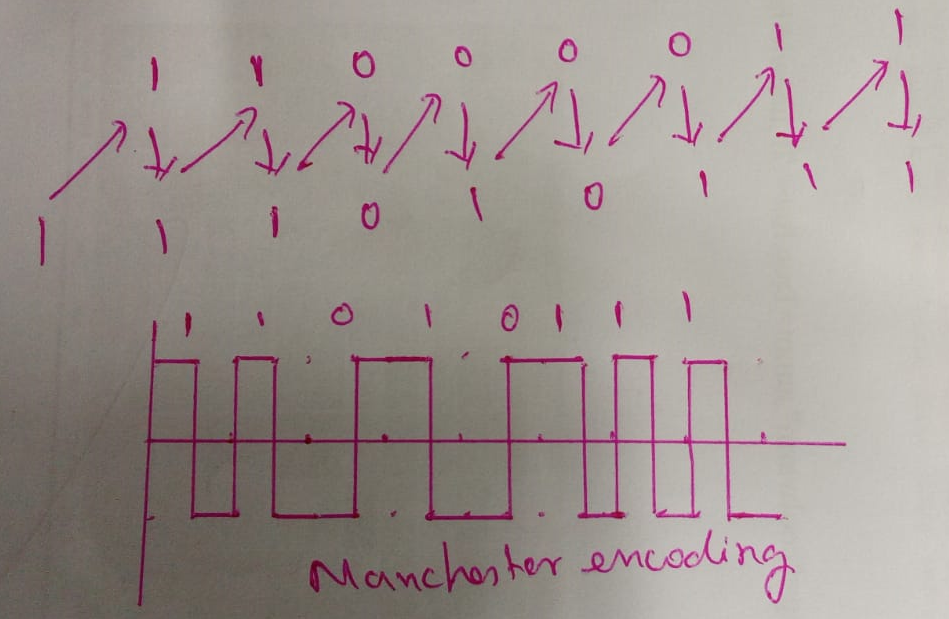 1 1 0 0 0 0 1 1
1 1 1 0 1 0 1 1 1
1 1 0 1 0 1 1 1
Manchester encoding